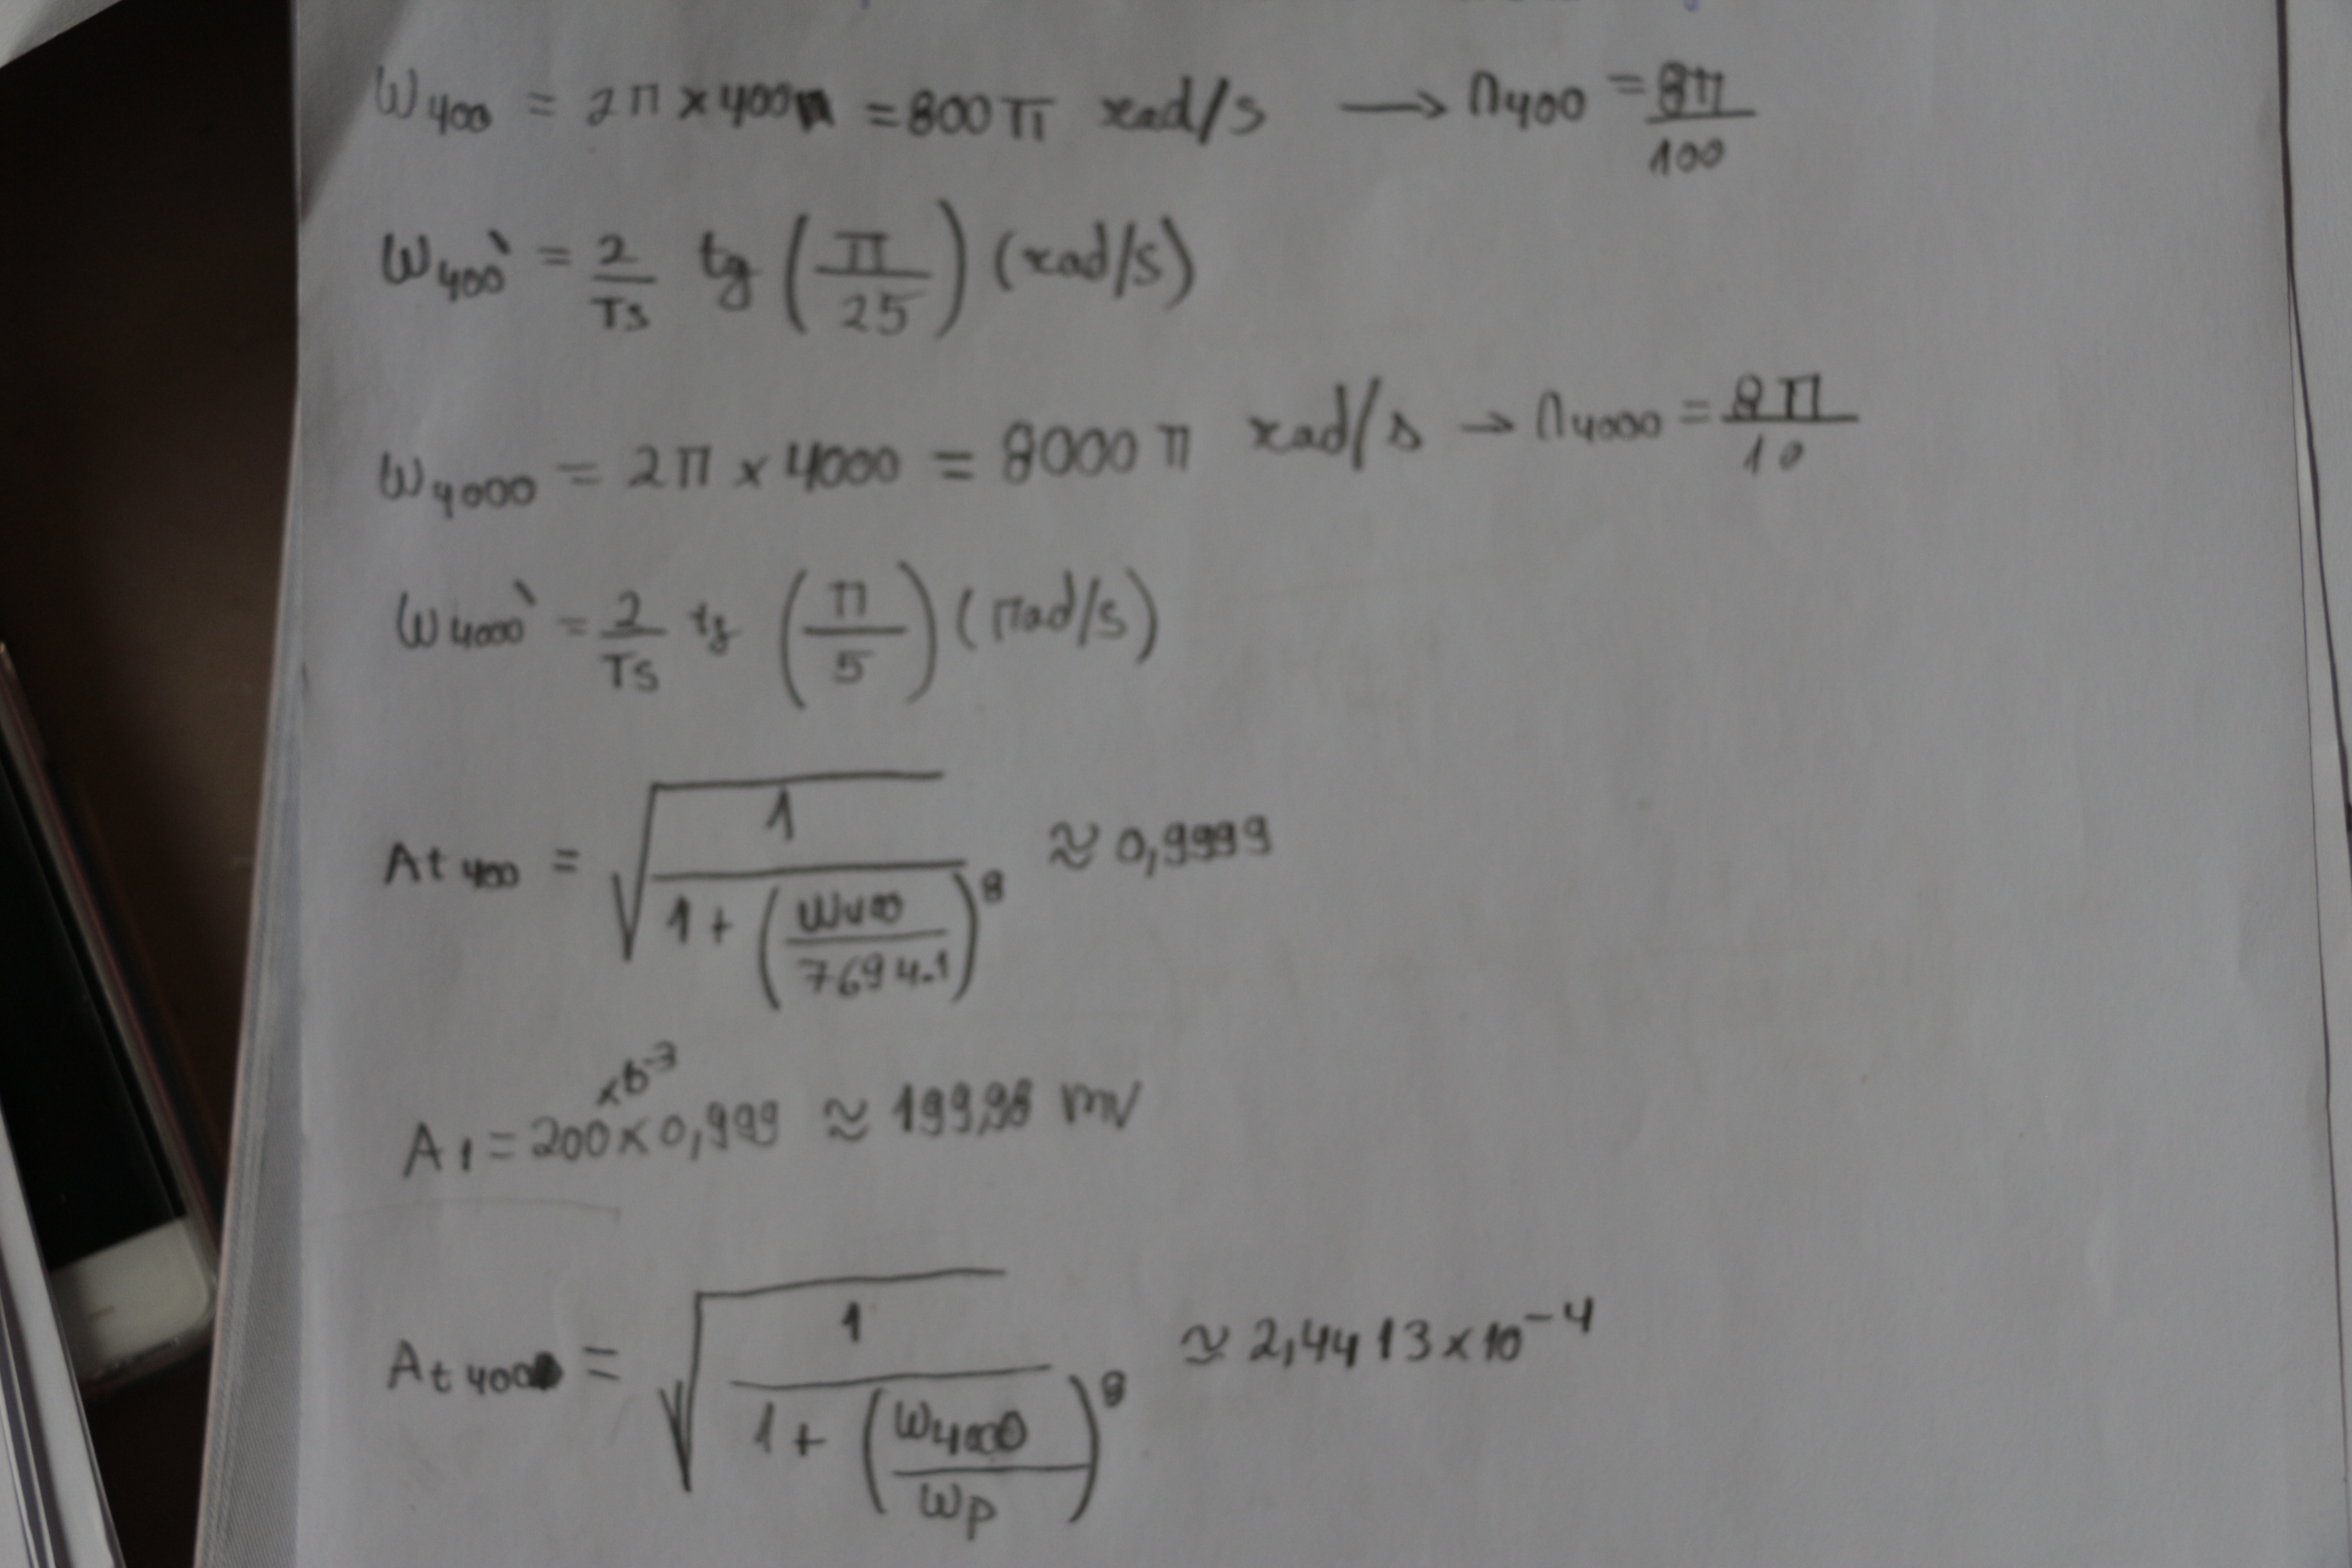 W400 = 2π x 400 = 800 π rad/s → Ω400 = 8π/100
W400` = 2/Ts tg (π/25) (rad/s)
W4000 = 2π x 4000 = 8000 π rad/s → Ω4000 = 8π/10
W4000` = 2/Ts tg (π/5) (rad/s)
At400 = √(1/(1 + (W400/7694.1)^8)) ≈ 0,9999
A1 = 200 x10^-3 x 0,999 ≈ 199,98 mV
At4000 = √(1/(1 + (W4000/Wp)^8)) ≈ 2,4413 x 10^-4